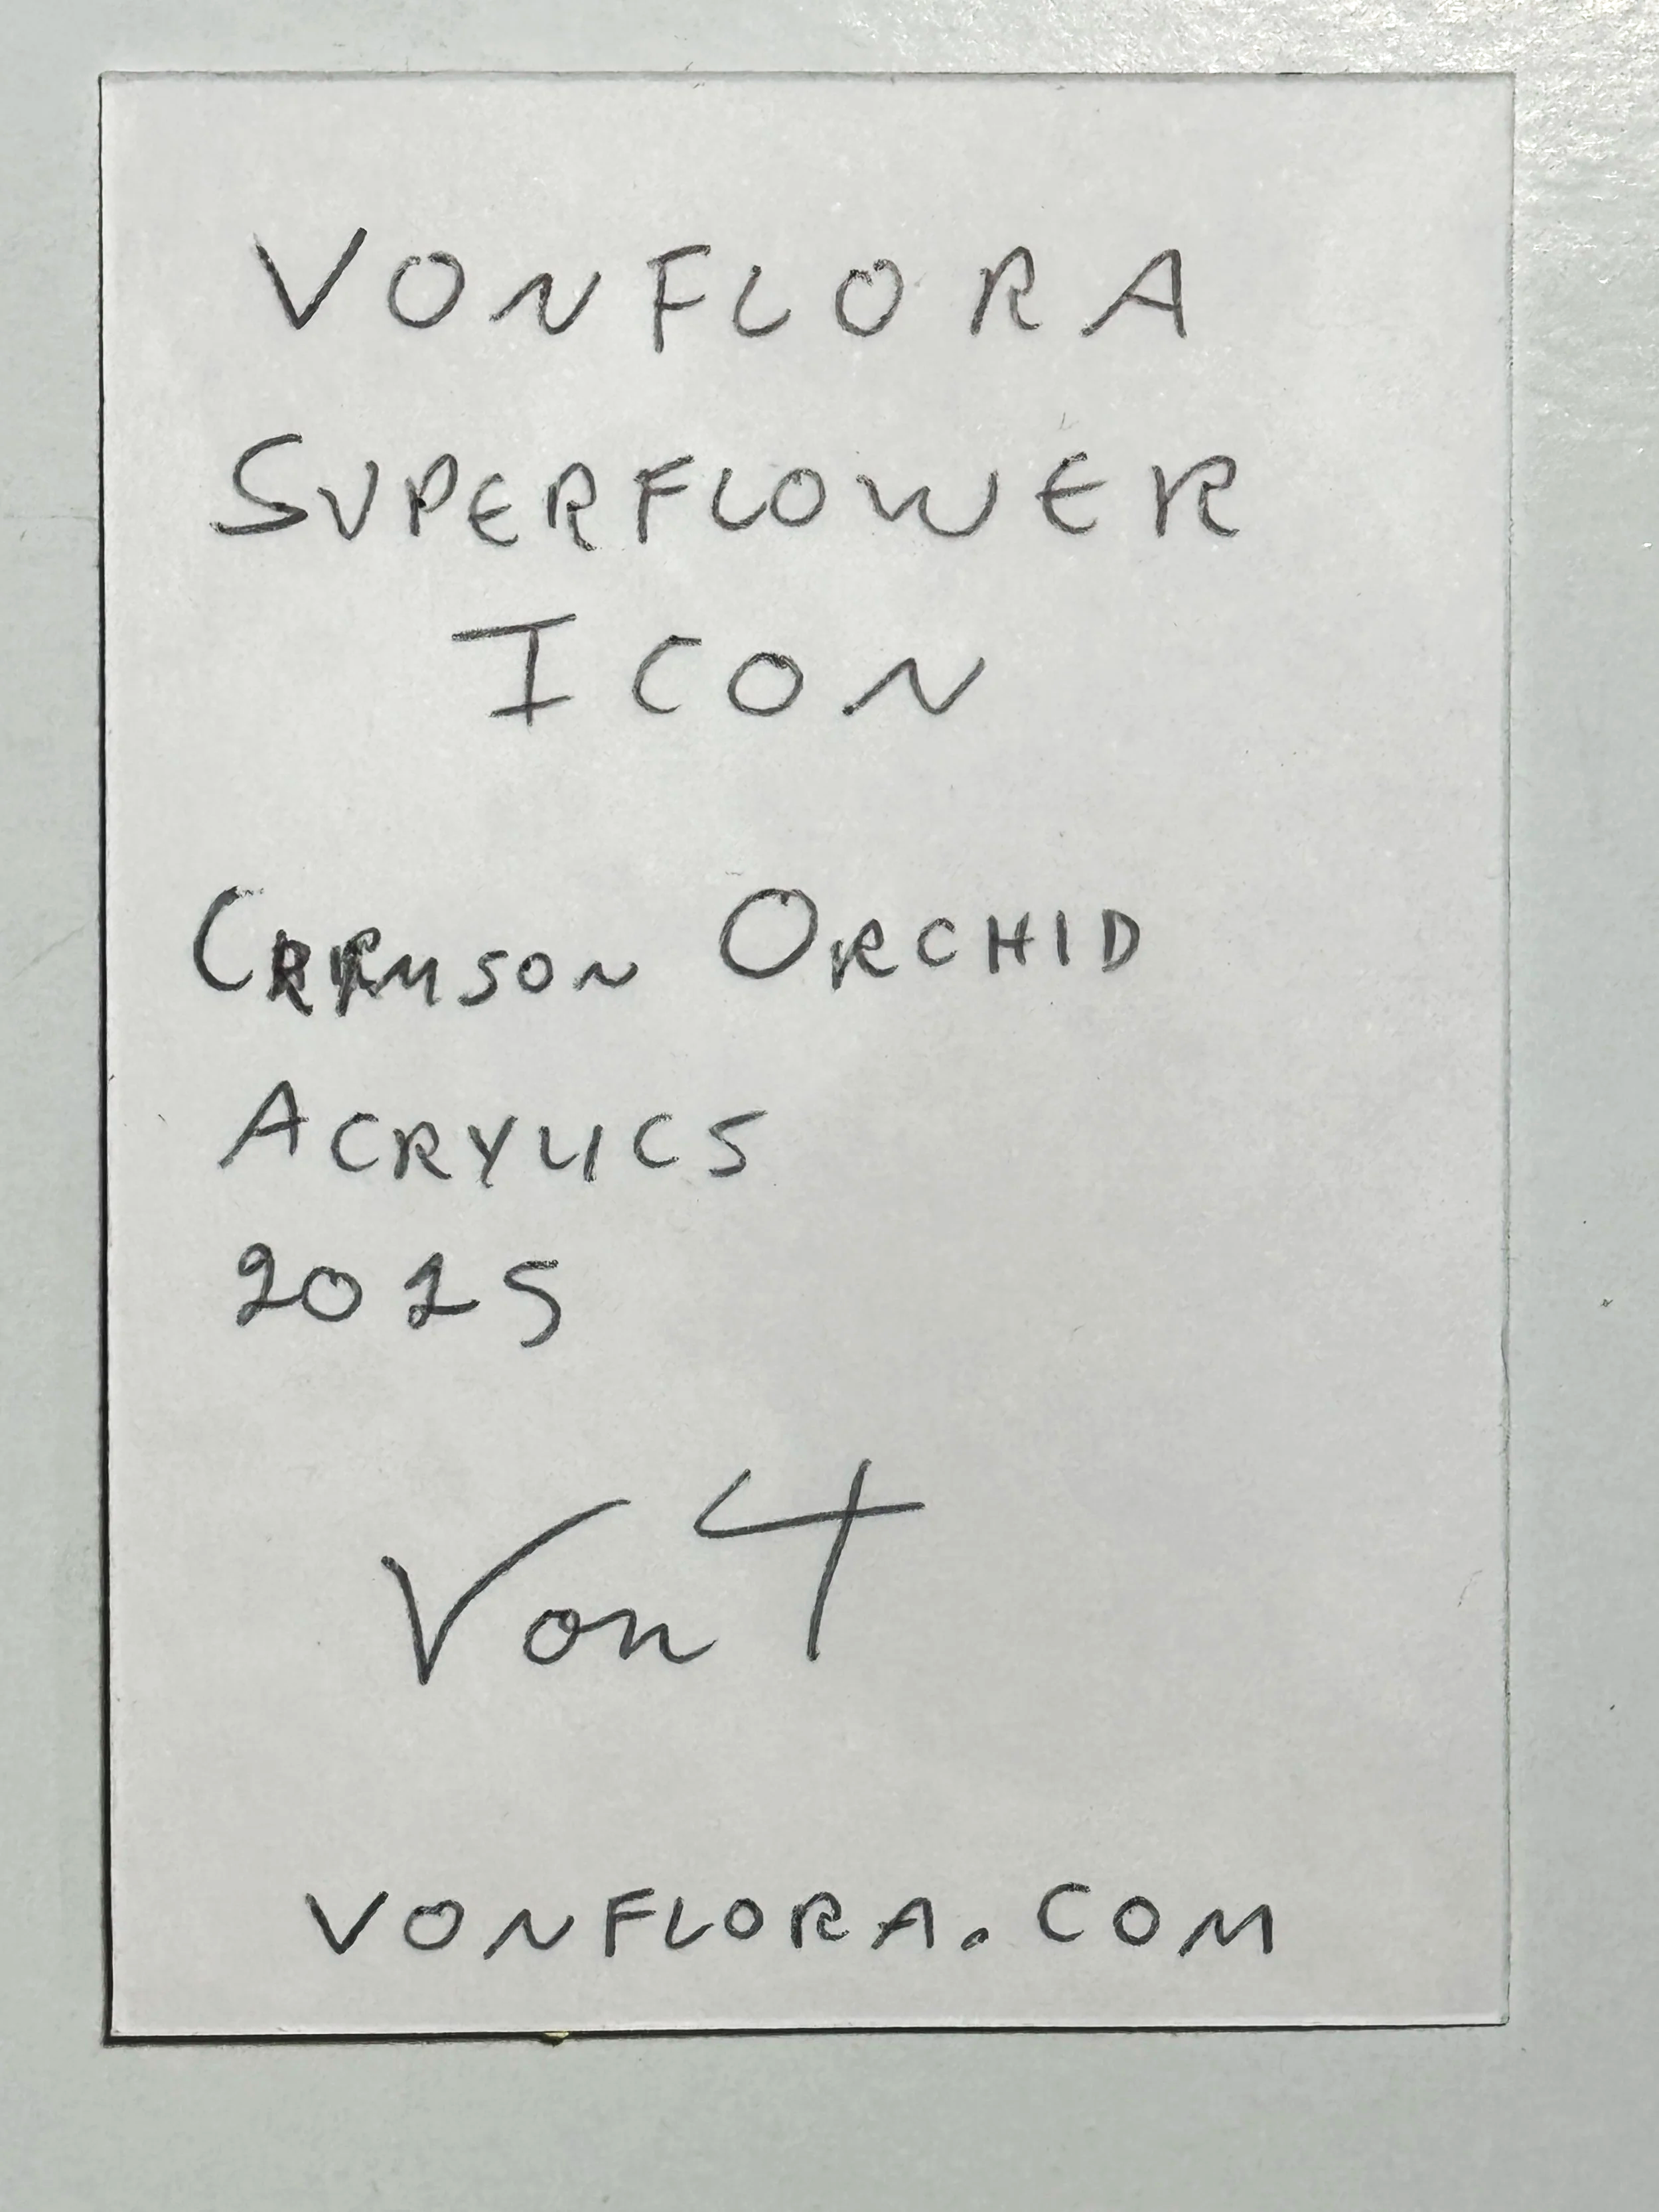 VONFLORA
SUPERFLOWER
ICON
CRIMSON ORCHID
ACRYLICS
2025
Von
VONFLORA.COM